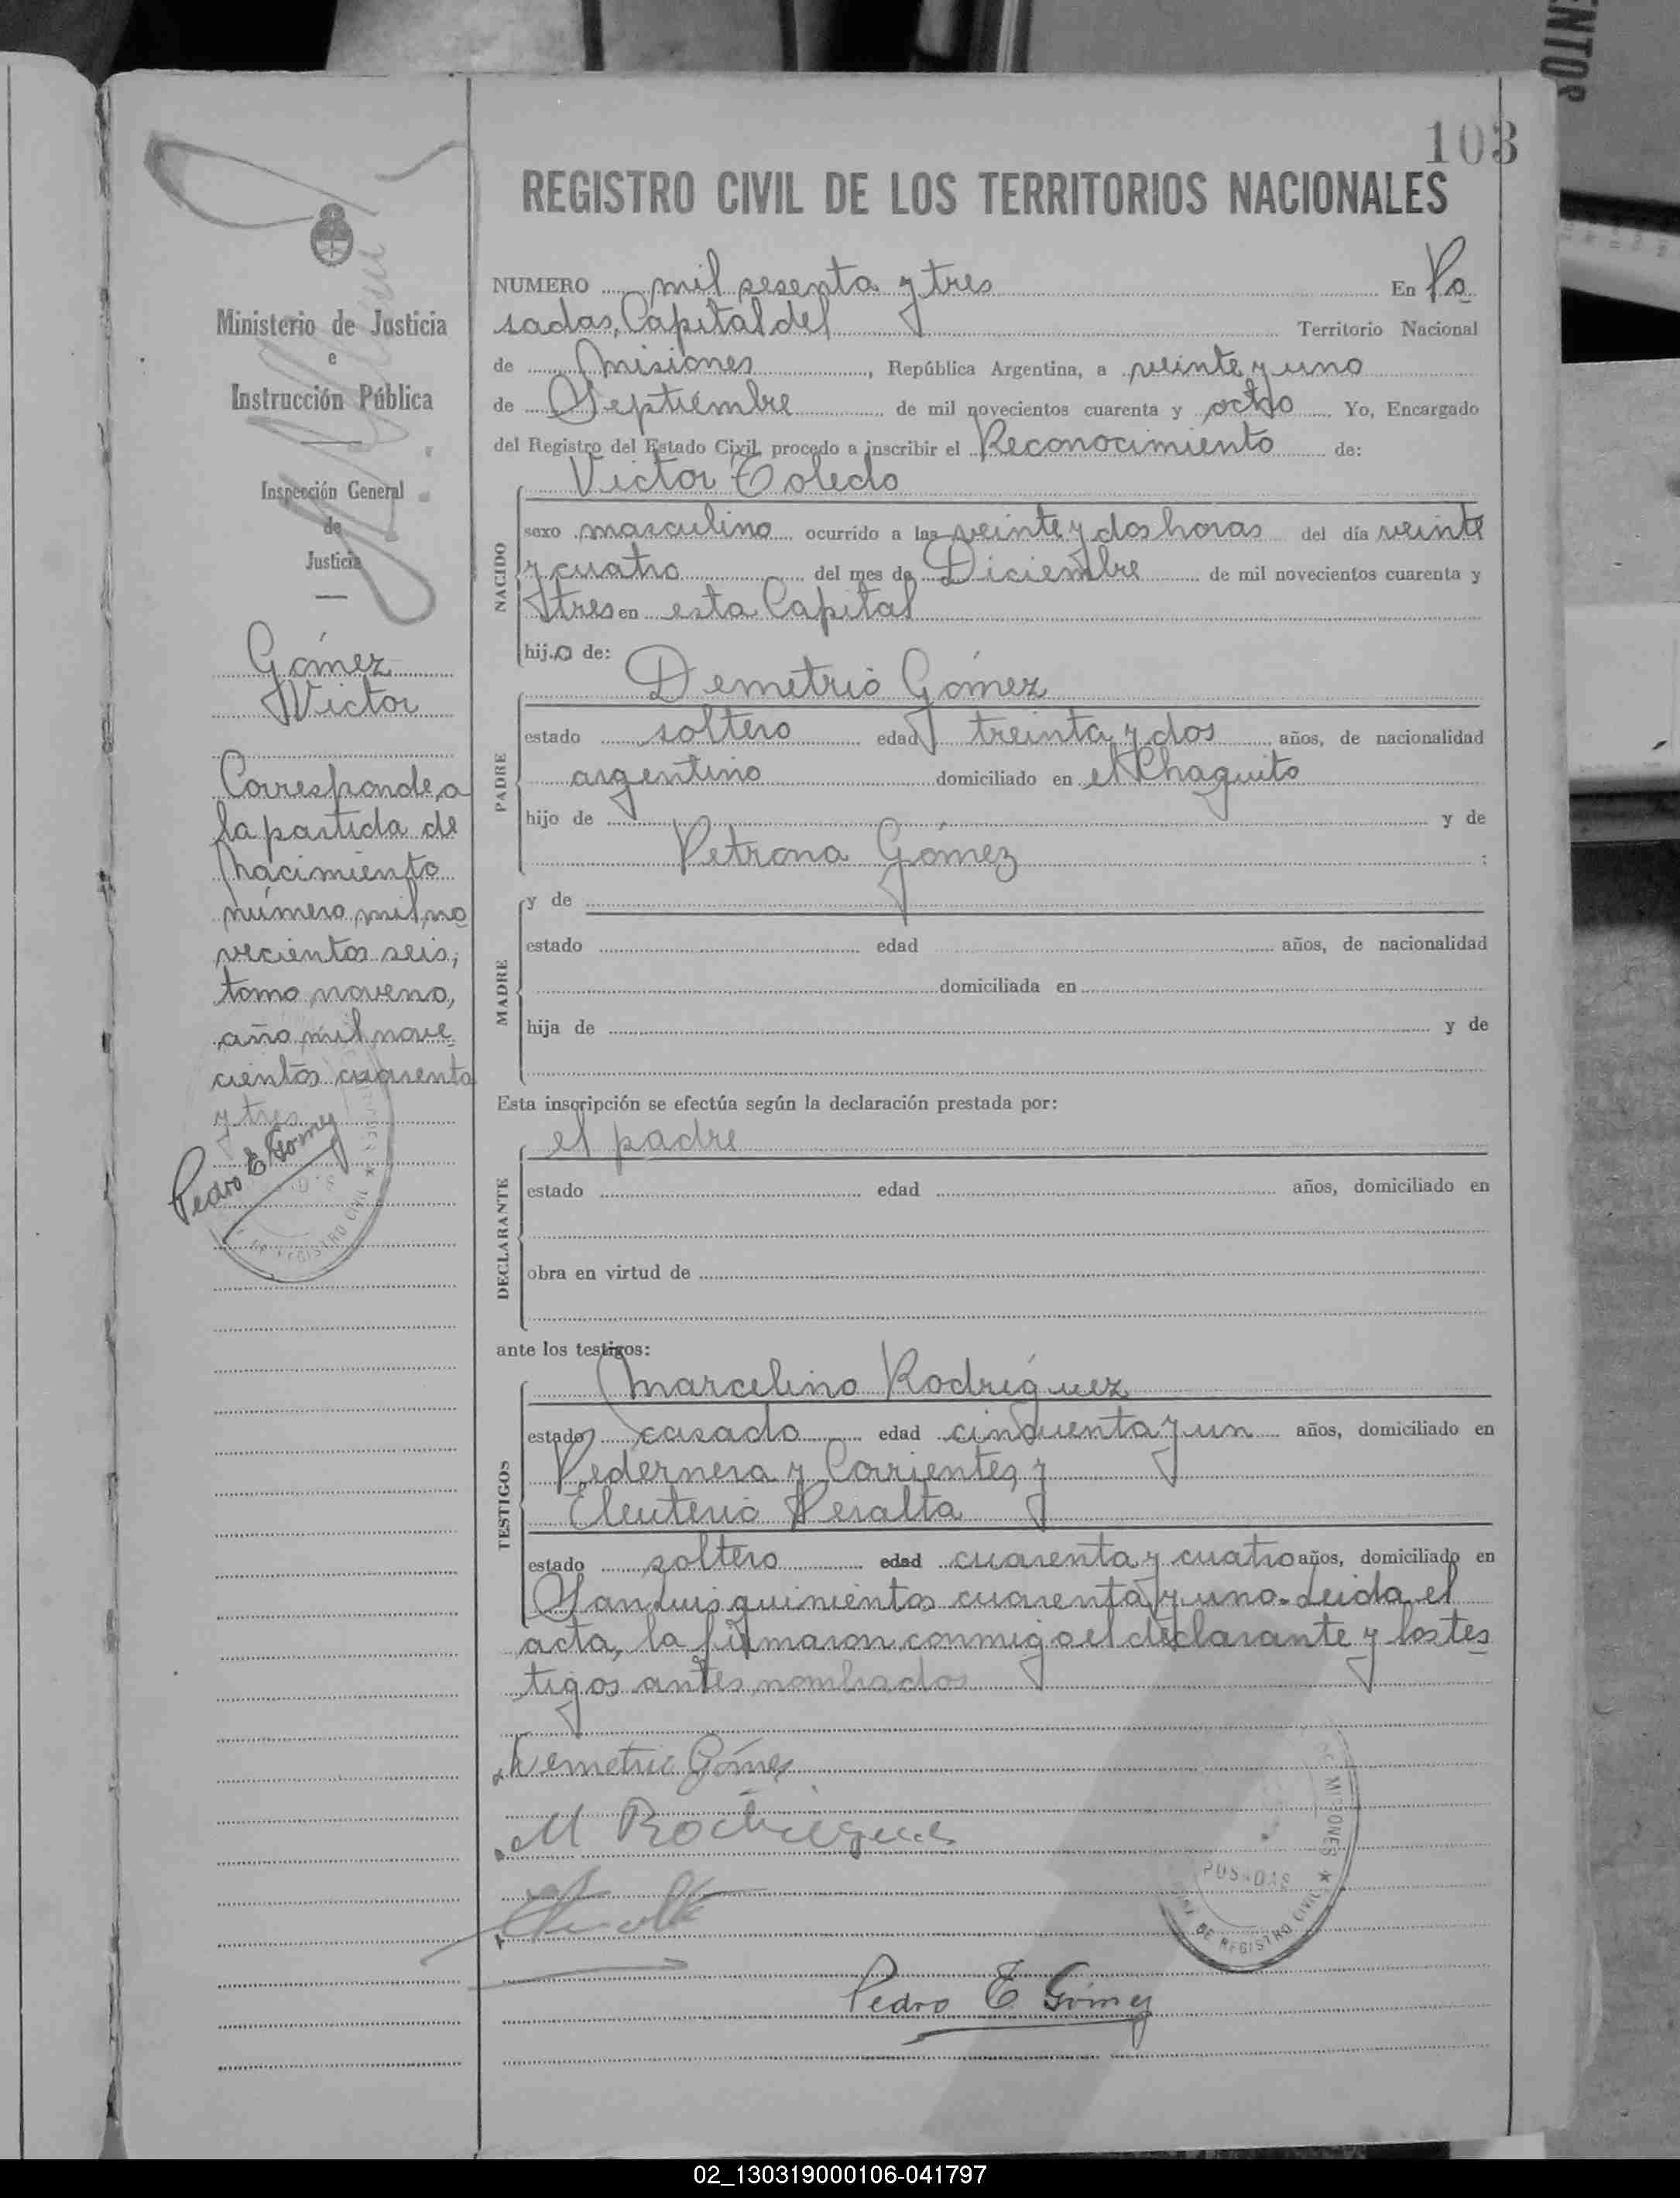 ENTOR
103
REGISTRO CIVIL DE LOS TERRITORIOS NACIONALES
Ministerio de Justicia
e
Instrucción Pública
Inspección General
de
Justicia
Gómez
Victor
Corresponde a
la partida de
Nacimiento
número mil no
vecientos seis,
tomo noveno,
año mil nove
cientos cuarenta
y tres
Pedro E Gómez
DE REGISTRO CIVIL
NUMERO mil sesenta y tres En Po
sadas, Capital del Territorio Nacional
de Misiones, República Argentina, a veinte y uno
de Septiembre de mil novecientos cuarenta y ocho Yo, Encargado
del Registro del Estado Civil, procedo a inscribir el Reconocimiento de:
Victor Toledo
NACIDO
sexo masculino ocurrido a las veinte y dos horas del día veinte
y cuatro del mes de Diciembre de mil novecientos cuarenta y
tres en esta Capital
hijo de:
Demetrio Gómez
PADRE
estado soltero edad treinta y dos años, de nacionalidad
argentino domiciliado en el Chaquito
hijo de y de
Petrona Gómez ;
MADRE
y de
estado edad años, de nacionalidad
domiciliada en
hija de y de
Esta inscripción se efectúa según la declaración prestada por:
el padre
DECLARANTE
estado edad años, domiciliado en
obra en virtud de
ante los testigos:
Marcelino Rodríguez
TESTIGOS
estado casado edad cincuenta y un años, domiciliado en
Pedernera y Corrientes y
Eleuterio Peralta
estado soltero edad cuarenta y cuatro años, domiciliado en
San Luis quinientos cuarenta y uno. Leida el
acta, la firmaron conmigo el declarante y los tes
tigos antes nombrados
Demetrio Gómez
M Rodriguez
MISIONES
POSADAS
DE REGISTRO CIVIL
Pedro E Gómez
02_130319000106-041797